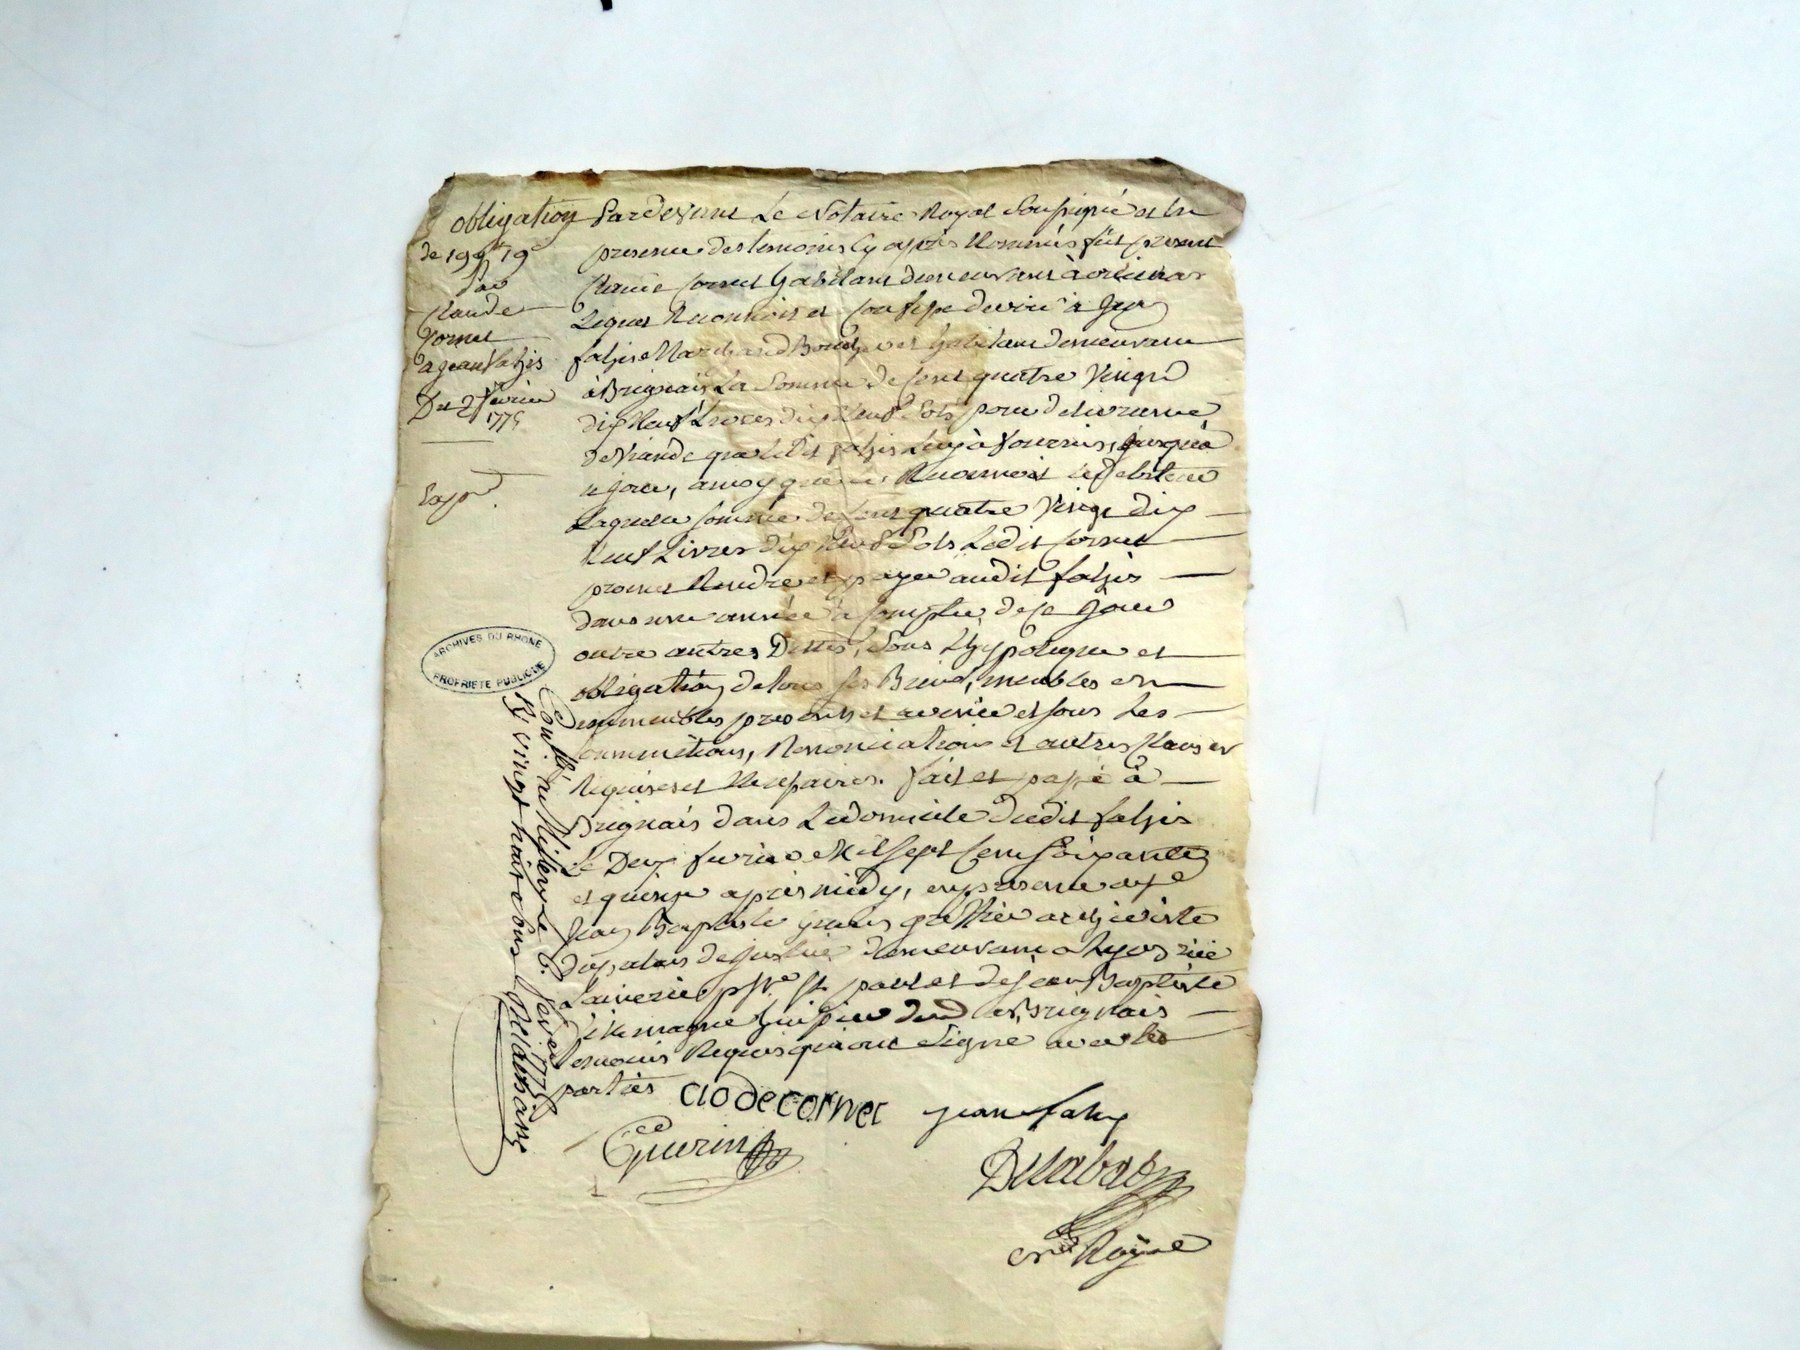 obligation
de 199# 19s
par
Claude
Cornet
a jean fahys
Du 2 fevrier
1775
Exp.d
Pardevant Le Notaire Royal soussigné et En
presence des temoins Cy après Nommés fut present
Claude Cornet habitant demeurant à
Lequel Reconnoit et Confesse devoir à Jean
fahjs Marchand Boucher et habitant demeurant
à Brignais La Somme de Cent quatre Vingt
dix Neuf Livres dix Neuf Sols pour delivrance
de Viande que Ledit fahjs Luy à fournis, jusquà
ce jour, Reconnoit
Laquelle Somme de Cent quatre Vingt dix
Neuf Livres dix Neuf Sols Ledit Cornet
promet Rendre et payer audit fahjs
dans une année à Compter de Ce jour
outre autres Dettes, sous L'hypoteque et
obligation de tous ses Biens, meubles et
immeubles presents et avenir et sous Les
Soummissions, Renonciations et autres Clauses
Requises et Necessaires. fait et passé à
Brignais dans Le domicile dudit fahjs
Le Deux fevrier Mil sept Cent soixante
et quinze après midy, en presence de
Jean Baptiste Guerin greffier
du palais de justice demeurant a Lyon rüe
Lainerie psse St paul et de jean Baptiste
huissier Brignais
temoins Requis qui ont Signé avec les
parties
clode cornet
jean fahy
Guerin
Delabat
Nre Royal
Conllé a Millery Le 6. fevrier 1775
R. vingt huit sous
ARCHIVES DU RHONE
PROPRIETE PUBLIQUE